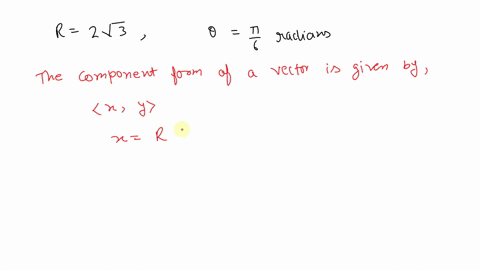 R = 2√3 , θ = π/6 radians
The component form of a vector is given by,
<x, y>
x = R